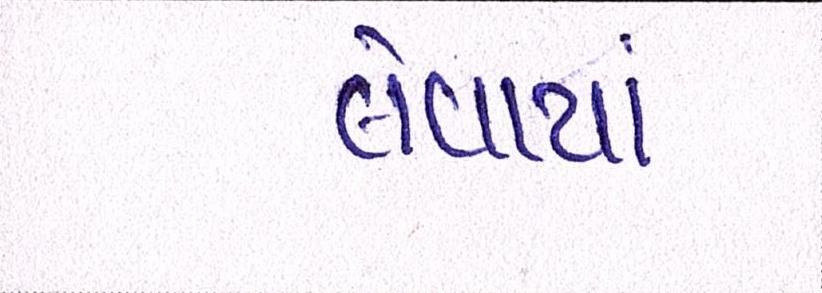 લેવાયાં